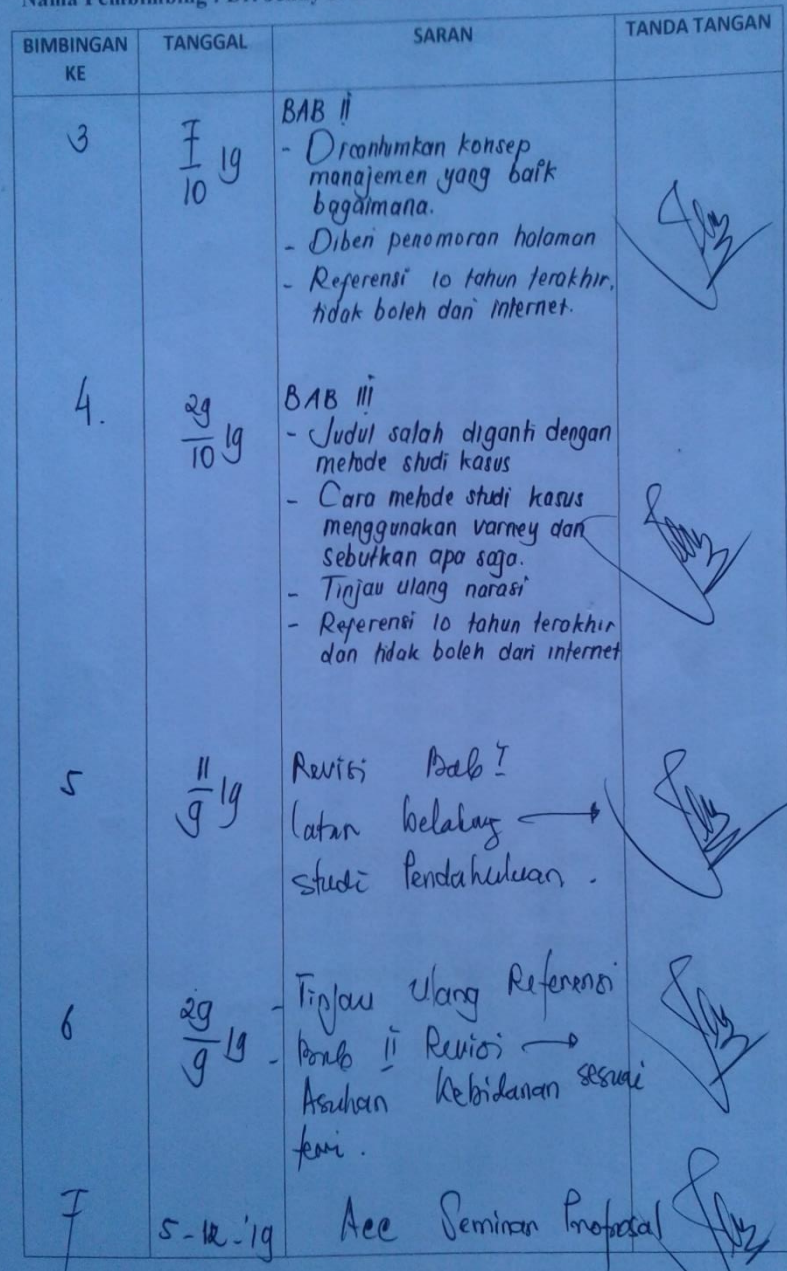 Nama Pembimbing :
BIMBINGAN KE
TANGGAL
SARAN
TANDA TANGAN
3
7/10 19
BAB II
- Dicantumkan konsep
manajemen yang baik
bagaimana.
- Diberi penomoran halaman
- Referensi 10 tahun terakhir,
tidak boleh dari internet.
4.
29/10 19
BAB III
- Judul salah diganti dengan
metode studi kasus
- Cara metode studi kasus
menggunakan varney dan
sebutkan apa saja.
- Tinjau ulang narasi
- Referensi 10 tahun terakhir
dan tidak boleh dari internet
5
11/9 19
Revisi Bab I
latar belakang →
studi Pendahuluan.
6
29/9 19
- Tinjau Ulang Referensi
- Bab II Revisi →
Asuhan Kebidanan sesuai
teori.
7
5-12-'19
Acc Seminar Proposal